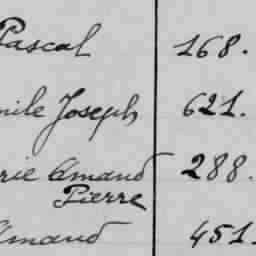 Pascal 168.
mile Joseph 621.
rie Amand 288.
Pierre
Amand 451.